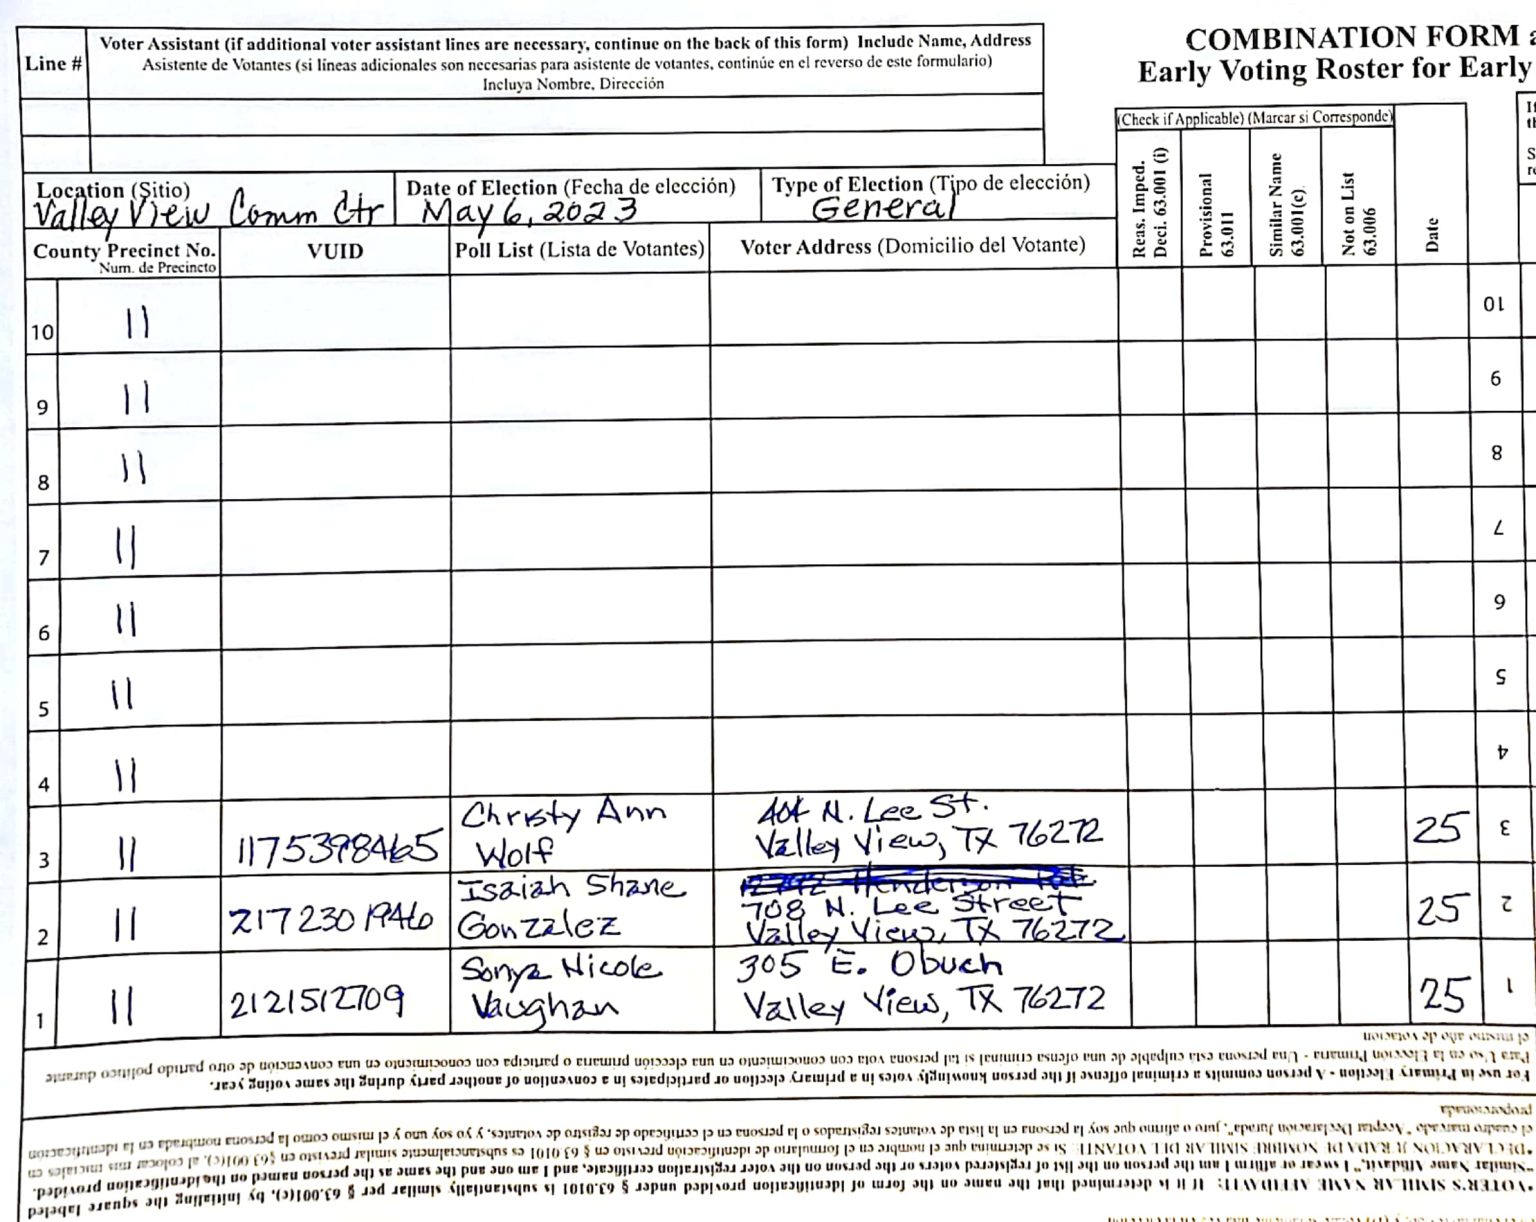 Line #
Voter Assistant (if additional voter assistant lines are necessary, continue on the back of this form) Include Name, Address
Asistente de Votantes (si líneas adicionales son necesarias para asistente de votantes, continúe en el reverso de este formulario)
Incluya Nombre, Dirección
COMBINATION FORM
Early Voting Roster for Early
(Check if Applicable) (Marcar si Corresponde)
Location (Sitio)
Valley View Comm Ctr
Date of Election (Fecha de elección)
May 6, 2023
Type of Election (Tipo de elección)
General
County Precinct No.
Num. de Precincto
VUID
Poll List (Lista de Votantes)
Voter Address (Domicilio del Votante)
Reas. Imped.
Deci. 63.001 (i)
Provisional
63.011
Similar Name
63.001(c)
Not on List
63.006
Date
10 11 10
9 11 9
8 11 8
7 11 7
6 11 6
5 11 5
4 11 4
3 11 1175398465
Christy Ann
Wolf
404 N. Lee St.
Valley View, TX 76272
25 3
2 11 2172301946
Isaiah Shane
Gonzalez
708 N. Lee Street
Valley View, TX 76272
25 2
1 11 2121512709
Sonya Nicole
Vaughan
305 E. Obuch
Valley View, TX 76272
25 1
el mismo año de votación
Para Uso en la Elección Primaria - Una persona está culpable de una ofensa criminal si tal persona vota con conocimiento en una elección primaria o participa con conocimiento en una convención de otro partido político durante
For use in Primary Election - A person commits a criminal offense if the person knowingly votes in a primary election or participates in a convention of another party during the same voting year.
proporcionada
el cuadro marcado "Aceptar Declaración Jurada", juro o afirmo que soy la persona en la lista de votantes registrados o la persona en el certificado de registro de votantes, y yo soy uno y el mismo como la persona nombrada en la identificación
*DECLARACION JURADA DE NOMBRE SIMILAR DEL VOTANTE: Si se determina que el nombre en el formulario de identificación previsto en § 63.0101 es substancialmente similar previsto en §63.001(c), al colocar mis iniciales en
"Similar Name Affidavit," I swear or affirm I am the person on the list of registered voters or the person on the voter registration certificate, and I am one and the same as the person named on the identification provided.
*VOTER'S SIMILAR NAME AFFIDAVIT: If it is determined that the name on the form of identification provided under § 63.0101 is substantially similar per § 63.001(c), by initialing the square labeled